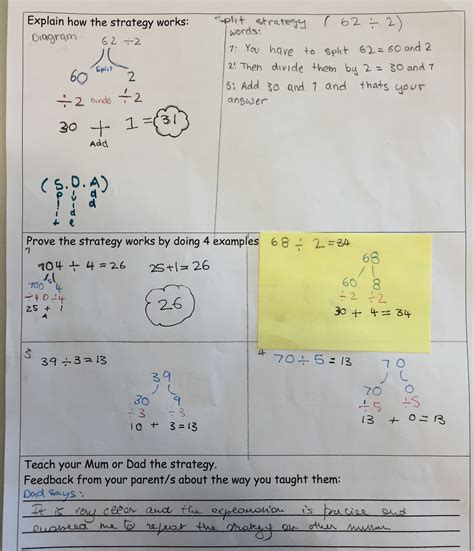 Explain how the strategy works:
Diagram
62 ÷ 2
Split
60 2
÷2 Divide ÷2
30 + 1 = 31
Add
(S.D.A)
Split
Divide
Add
Split strategy (62 ÷ 2)
words:
1: You have to split 62 = 60 and 2
2: Then divide them by 2 = 30 and 1
3: Add 30 and 1 and thats your
answer
Prove the strategy works by doing 4 examples
1
104 ÷ 4 = 26 25+1=26
100 4
÷4 D ÷4
25 + 1
A
26
68 ÷ 2 = 34
68
60 8
÷2 ÷2
30 + 4 = 34
3
39 ÷ 3 = 13
39
30 9
÷3 ÷3
10 + 3 = 13
4
70 ÷ 5 = 13
70
70 0
÷5 ÷5
13 + 0 = 13
Teach your Mum or Dad the strategy.
Feedback from your parent/s about the way you taught them:
Dad says:
It is very clear and the explanation is precise and
me to repeat the strategy on other